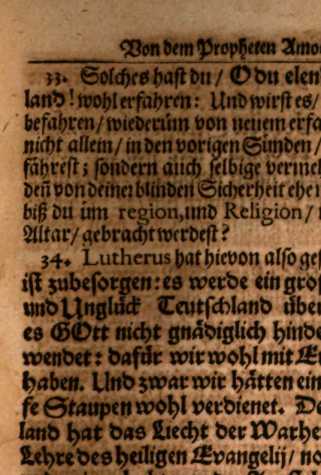 Von dem Propheten Amo
33. Solches hast du / O du elen
land! wohl erfahren: Und wirst es /
befahren / wiederüm von neuem erfa
nicht allein / in den vorigen Sünden /
fährest; sondern auch selbige verme
deñ von deiner blinden Sicherheit ehe
biß du üm region, und Religion /
Altar / gebracht werdest?
34. Lutherus hat hievon also ges
ist zubesorgen: es werde ein gros
und Unglück Teutschland über
es GOtt nicht gnädiglich hinde
wendet: dafür wir wohl mit E
haben. Und zwar wir hätten ein
fe Staupen wohl verdienet. De
land hat das Liecht der Warhe
Lehre des heiligen Evangelij / no